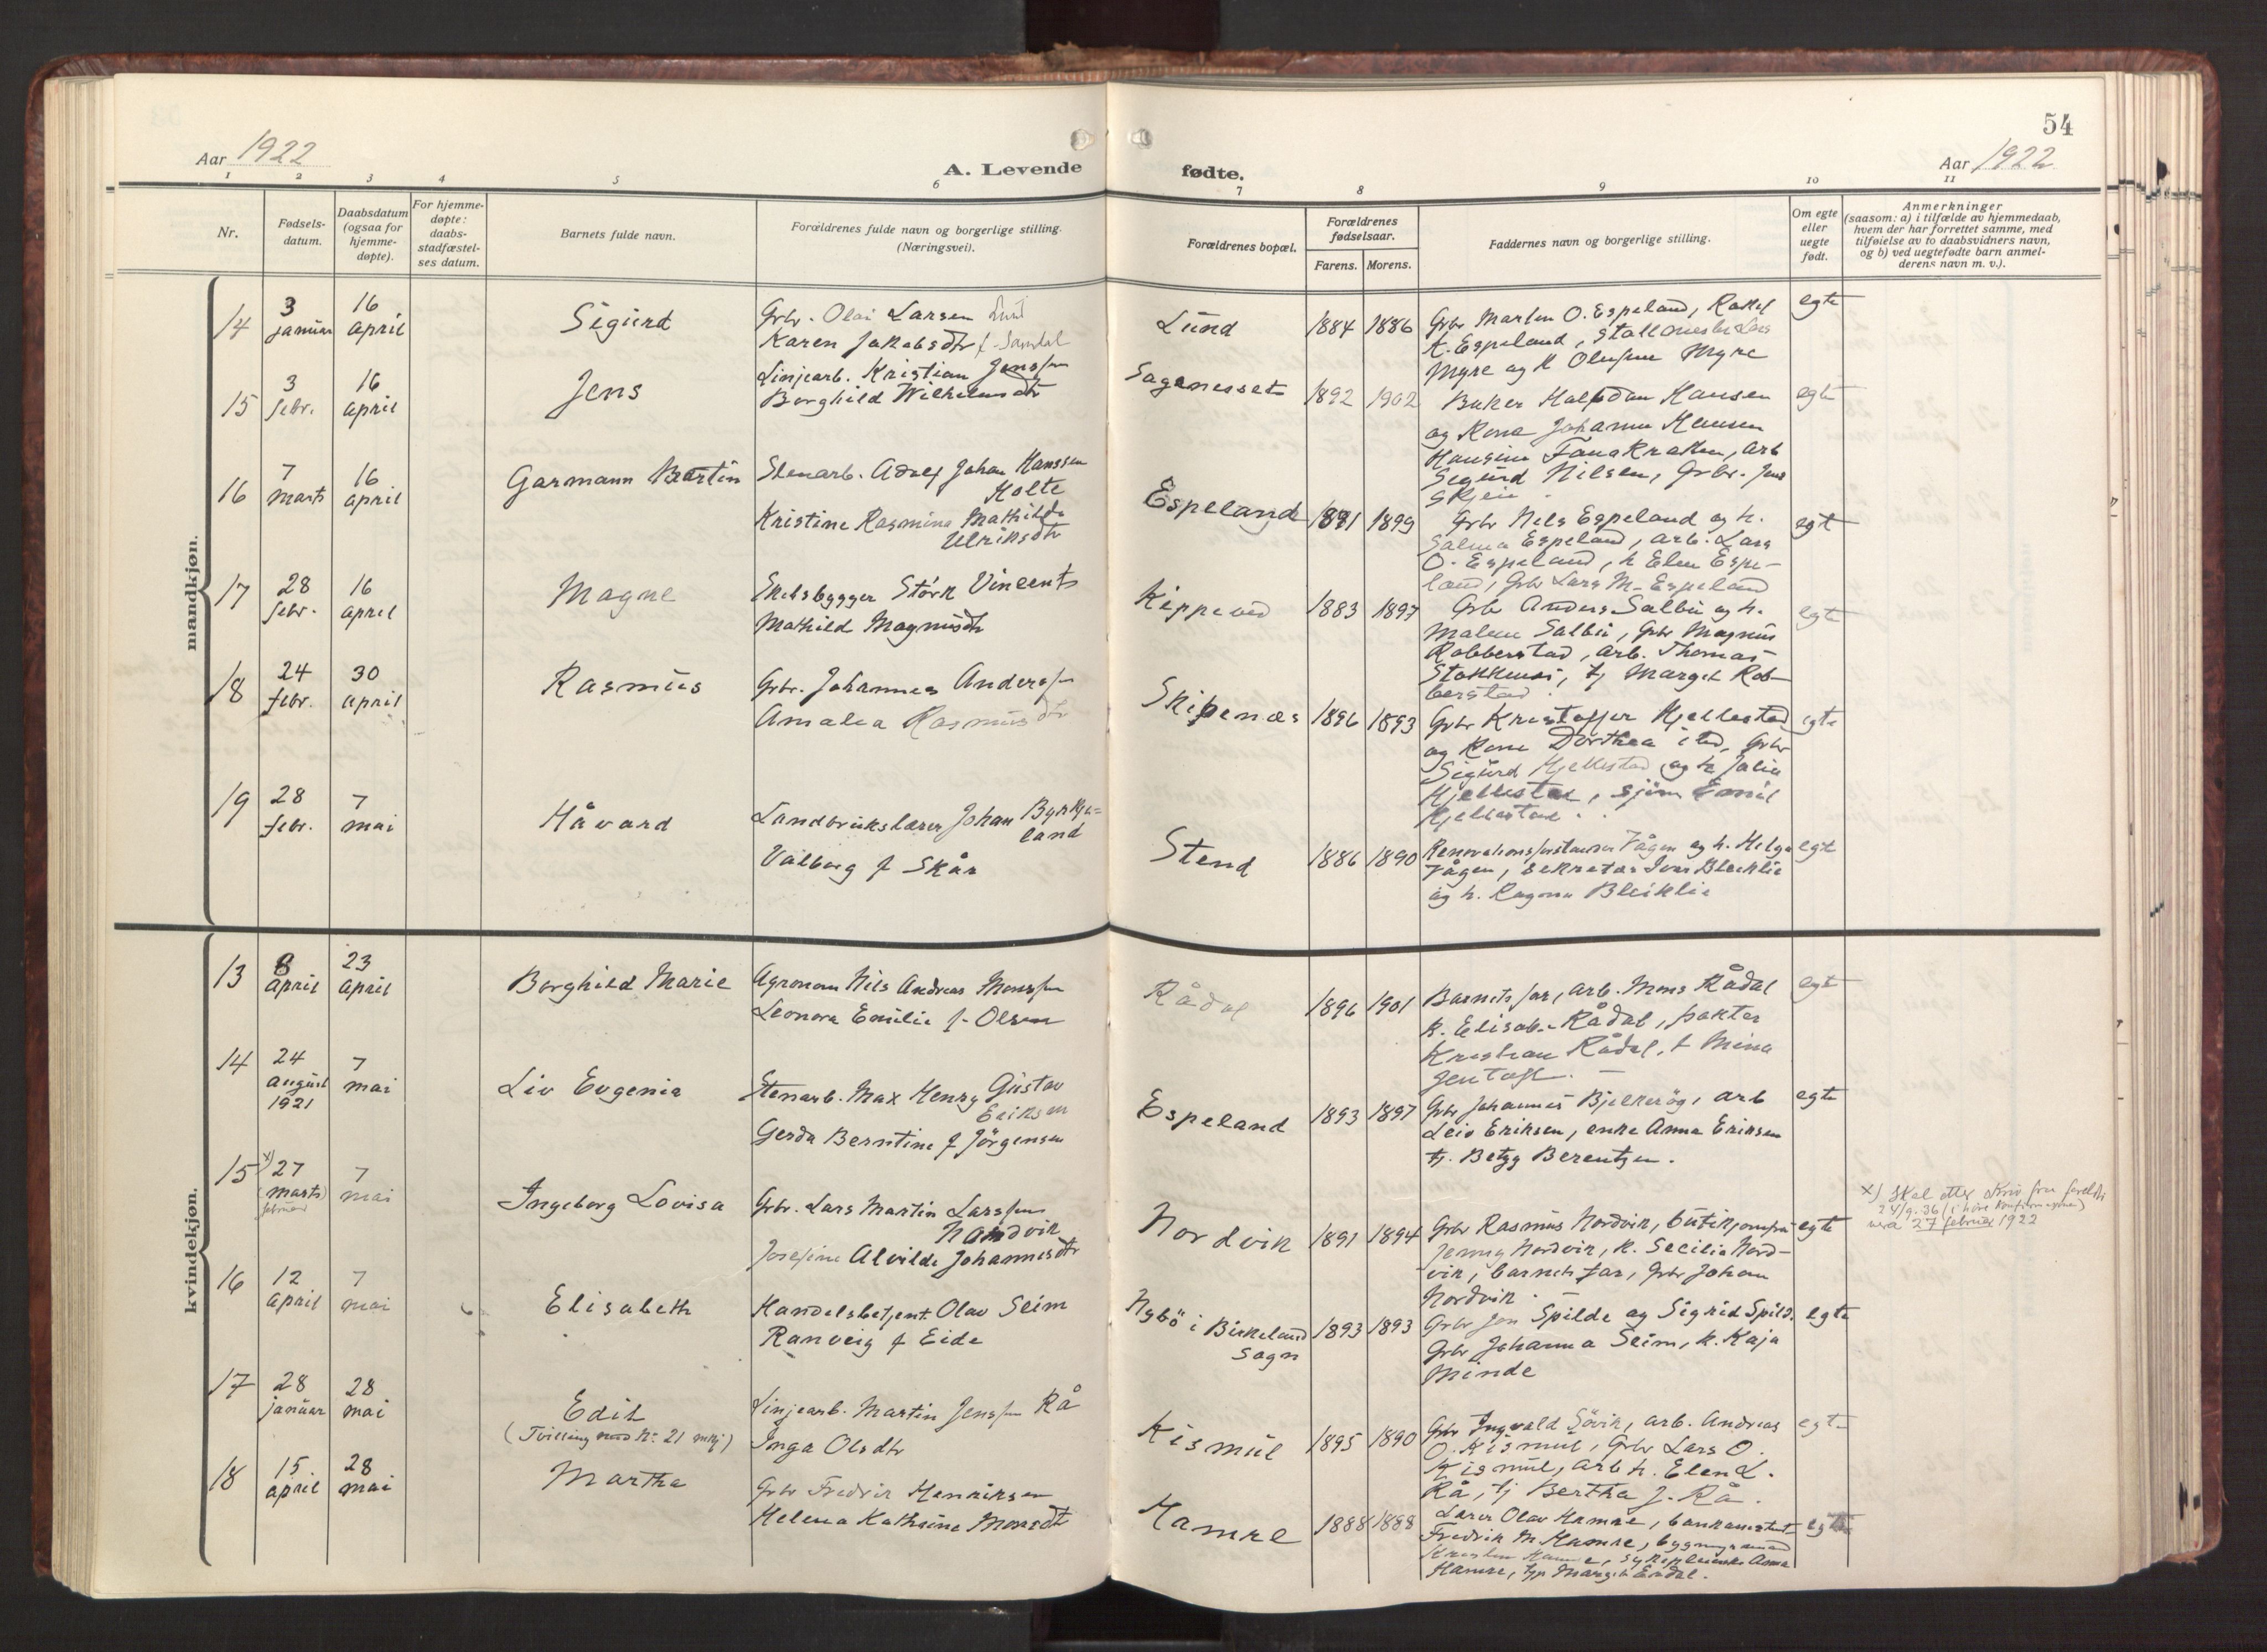 54
Aar 1922
A. Levende fødte.
Aar 1922
1 2 3 4 5 6 7 8 9 10 11
Nr.
Fødsels-
datum.
Daabsdatum
(ogsaa for
hjemme-
døpte).
For hjemme-
døpte:
daabs-
stadfæstel-
ses datum.
Barnets fulde navn.
Forældrenes fulde navn og borgerlige stilling.
(Næringsvei).
Forældrenes bopæl.
Forældrenes
fødselsaar.
Farens. Morens.
Faddernes navn og borgerlige stilling.
Om egte
eller
uegte
født.
Anmerkninger
(saasom: a) i tilfælde av hjemmedaab,
hvem der har forrettet samme, med
tilføielse av to daabsvidners navn,
og b) ved uegtefødte barn anmel-
derens navn m. v.).
mandkjøn.
14
3
januar
16
april
Sigurd
Grbr. Olai Larsen Lund
Karen Jakobsdtr f. Samdal
Lund
1884 1886
Grbr Marten O. Espeland, Rakel
K. Espeland, Lars
Myre og K Olufine Myre
egte
15
3
febr.
16
april
Jens
Linjearb. Kristian Jenssen
Borghild Wilhelmsdtr
Sagenesset
1892 1902
Baker Halfdan Hansen
og Kona Johanna Hansen
Hansine Fanakrakken, arb
Sigurd Nilsen, Grbr. Jens
Skjeie.
egte
16
7
marts
16
april
Garmann Martin
Stenarb. Adolf Johan Hanssen
Holte
Kristine Rasmine Mathilde
Ulriksdtr
Espeland
1891 1899
Grbr Nels Espeland og h.
Salma Espeland, arb. Lars
O. Espeland, k Elen Espe-
land, Grbr Lars M. Espeland
egte
17
28
febr.
16
april
Magne
Skibsbygger Størk Vincents
Mathild Magnusdtr
Kippeved
1883 1897
Grbr Anders Salbu og h.
Malene Salbu, Grbr Magnus
Robberstad, arb. Thomas
tj Marget Rob-
berstad.
egte
18
24
febr.
30
april
Rasmus
Grbr. Johannes Anderssen
Amalia Rasmusdtr
Skipenæs
1896 1893
Grbr Kristoffer Hjellestad
og Kone Dorthea ibd, Grbr
Sigurd Hjellestad og h Julie
Hjellestad, sjöm Emil
Hjellestad.
egte
19
28
febr.
7
mai
Håvard
Landbrukslærer Johan Byrkje-
land
Valborg f Skår
Stend
1886 1890
Vågen og h. Helga
Vågen, sekretær Iver Bleiklie
og h. Ragna Bleiklie
egte
kvindekjøn.
13
8
april
23
april
Borghild Marie
Agronom Nils Andreas Monssen
Leonora Emilie f. Olsen
Rådal
1896 1901
Barnets far, arb. Mons Rådal
k. Elisab. Rådal, pakter
Kristian Rådal, k Mina
Jentoft.
egte
14
24
august
1921
7
mai
Liv Evgenia
Stenarb. Max Henry Gustav
Eriksen
Gerda Berntine f Jörgensen
Espeland
1893 1897
Grbr Johannes Bjelkerög, arb
Leiv Eriksen, enke Anna Eriksen
tj. Betzy Berentzen.
egte
15
x)
27
(marts)
februar
7
mai
Ingeborg Lovisa
Grbr. Lars Martin Larssen
Nordvik
Josefine Alvilde Johannesdtr
Nordvik
1891 1894
Grbr Rasmus Nordvik, butikjomfru
Jenny Nordvik, k. Secilie Nord-
vik, barnets far, Grbr Johan
Nordvik.
egte
x) Skal etter skriv fra foreldre
24/9. 36
vera 27 februar 1922
16
12
april
7
mai
Elisabeth
Handelsbetjent Olav Seim
Ranveig f Eide
Nybö i Birkeland
Sogn
1893 1893
Grbr Jon Spilde og Sigrid Spilde
Grbr Johanna Seim, k. Kaja
Minde
egte
17
28
januar
28
mai
Edit
(Tvilling med Nr 21 mkj)
Linjearb. Martin Jenssen Rå
Inga Olsdtr
Kismul
1895 1890
Grbr Ingvald Sövik, arb. Andreas
O. Kismul, Grbr Lars O.
Kismul, arb h. Elen L.
Rå, tj Bertha J. Rå.
egte
18
15
april
28
mai
Martha
Grbr Fredrik Henriksen
Helena Kathrine Monsdtr
Hamre
1888 1888
Lærer Olav Hamre,
Fredrik M Hamre,
Anna
Hamre, Endal.
egte